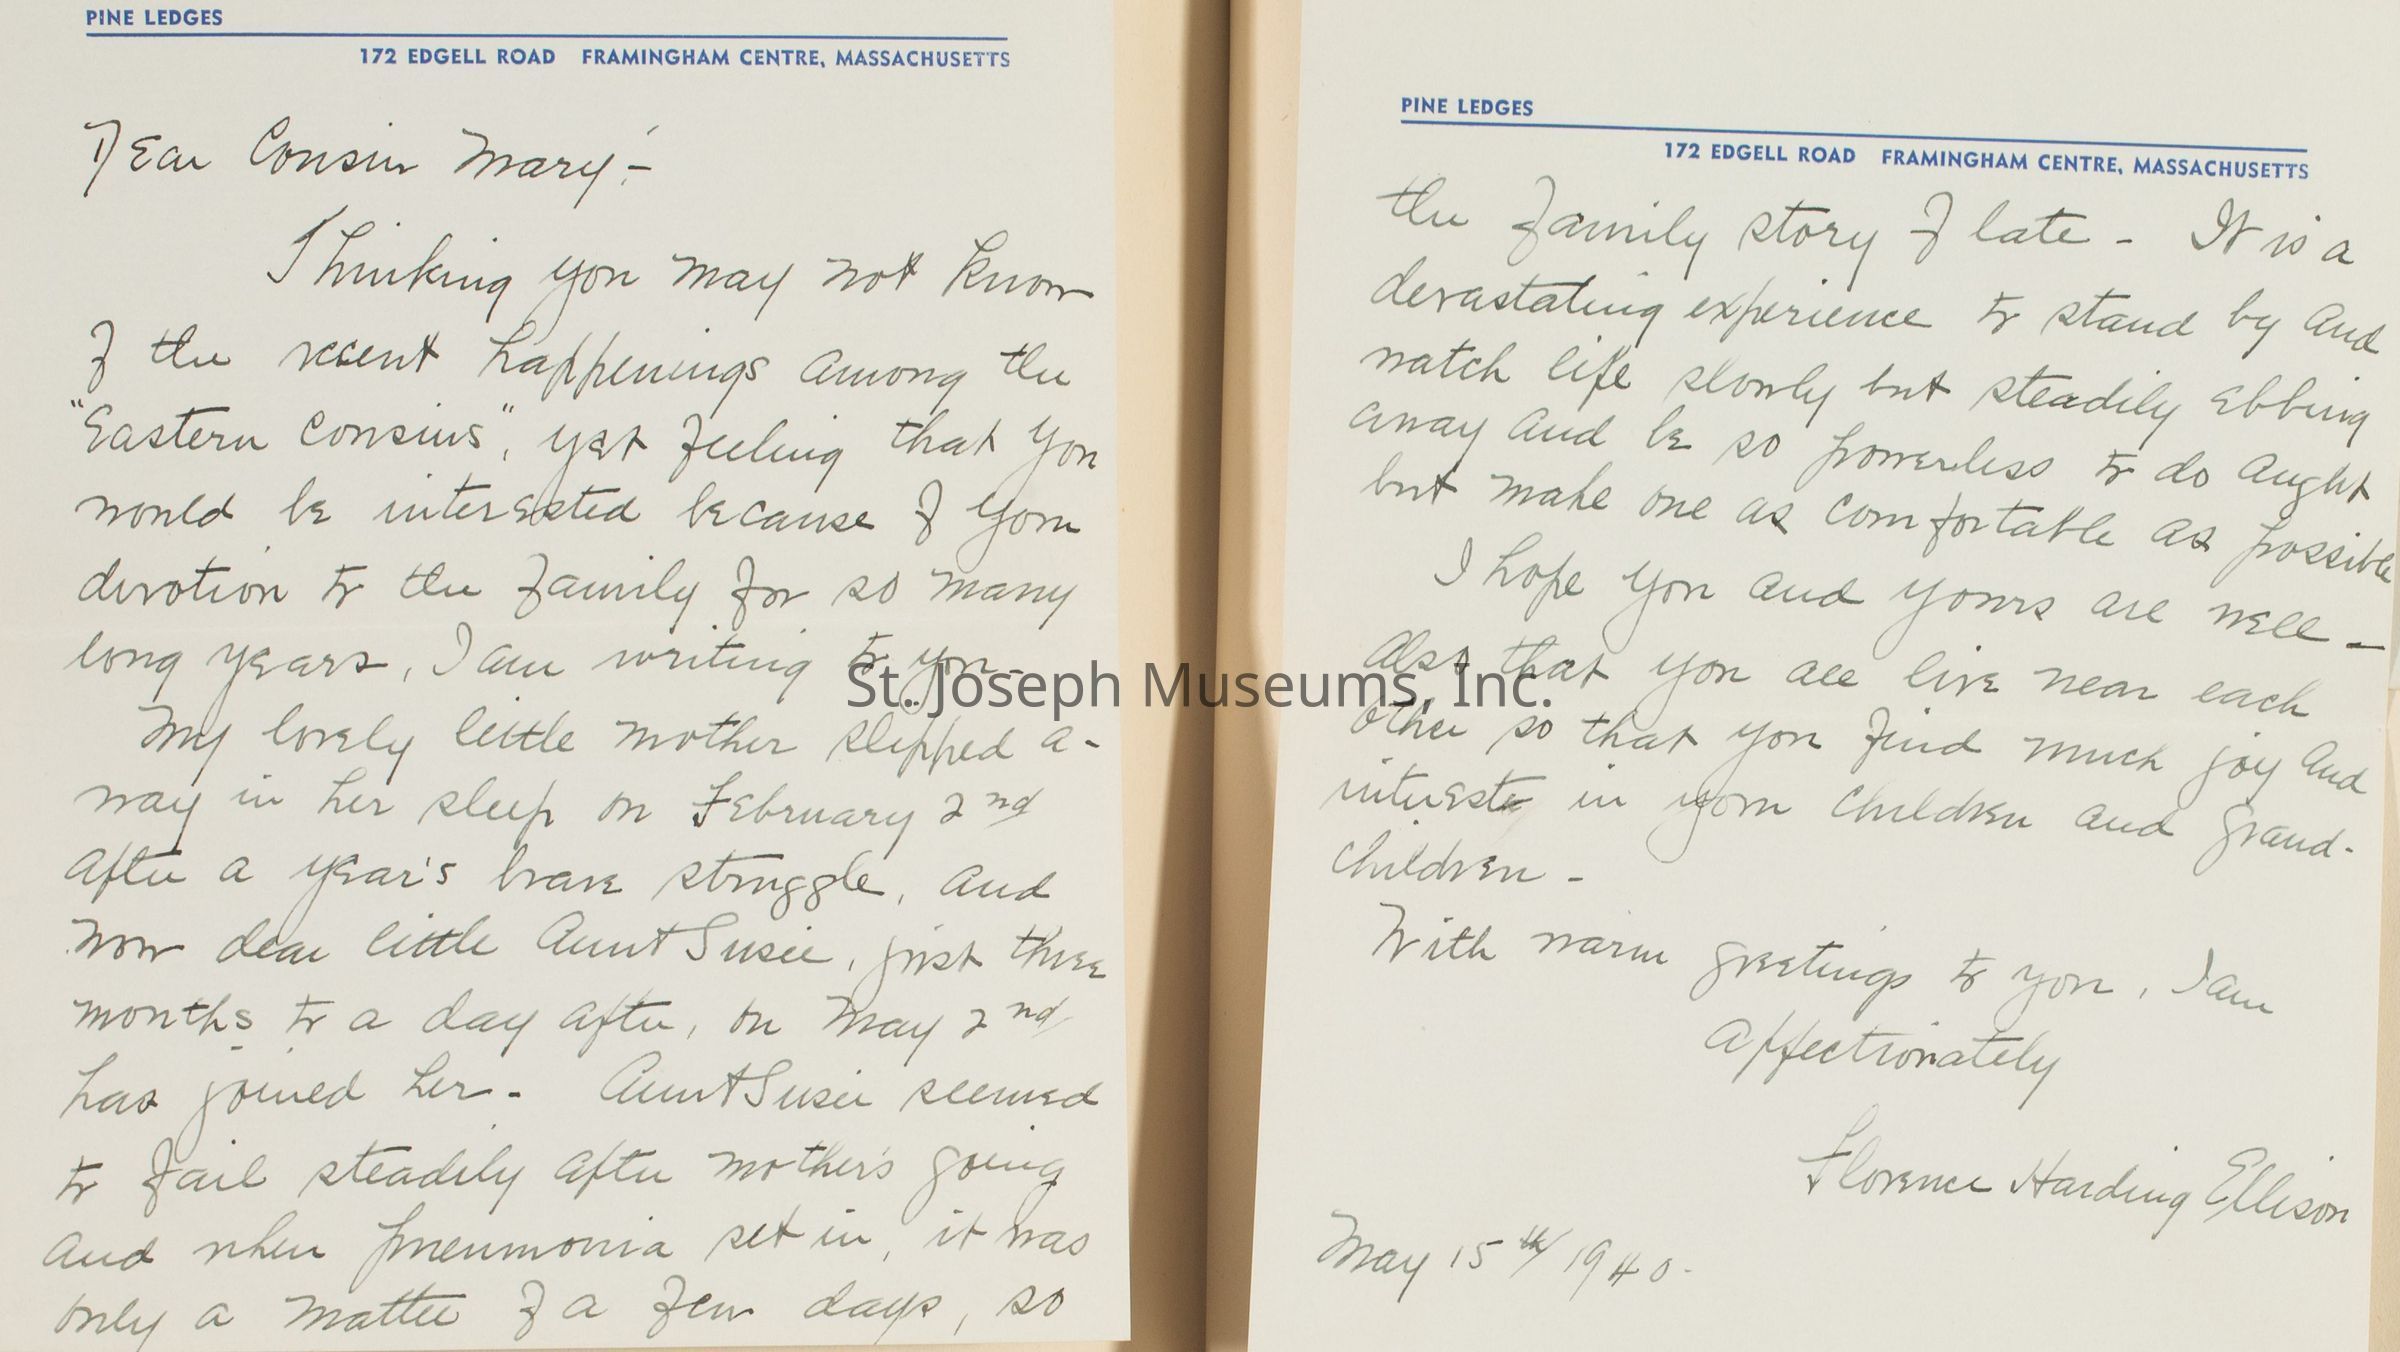 PINE LEDGES
172 EDGELL ROAD FRAMINGHAM CENTRE, MASSACHUSETTS
Dear Cousin Mary:-
Thinking you may not know
of the recent happenings among the
"Eastern Cousins", yet feeling that you
would be interested because of your
devotion to the family for so many
long years, I am writing to you -
My lovely little mother slipped a-
way in her sleep on February 2nd
after a year's brave struggle, and
now dear little Aunt Susie, just three
months to a day after, on May 2nd
has joined her - Aunt Susie seemed
to fail steadily after mother's going
and when pneumonia set in, it was
only a matter of a few days, so
PINE LEDGES
172 EDGELL ROAD FRAMINGHAM CENTRE, MASSACHUSETTS
the family story of late - It is a
devastating experience to stand by and
watch life slowly but steadily ebbing
away and be so powerless to do aught
but make one as comfortable as possible
I hope you and yours are well -
also that you all live near each
other so that you find much joy and
interests in your children and grand-
children -
With warm greetings to you, I am
Affectionately
Florence Harding Ellison
May 15th 1940.
St. Joseph Museums, Inc.